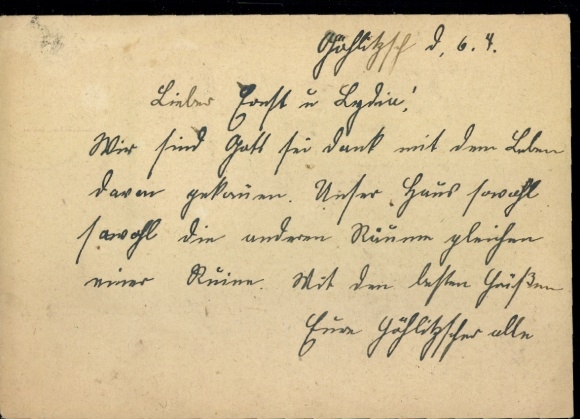 Göhlitzsch d, 6. 4.
Lieber Ernst u Lydia!
Wir sind Gott sei dank mit dem Leben
davon gekauen. Unser Haus sowohl
sowohl die anderen Räume gleichen
einer Ruine. Mit den besten Grüßen
Eure Göhlitzscher alle